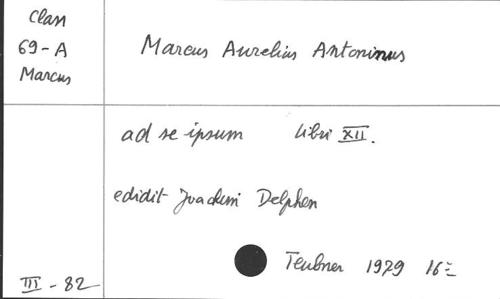 Class
69-A
Marcus
Marcus Aurelius Antoninus
ad se ipsum libri XII.
edidit Joachim Dalphen
Teubner 1979 16=
III - 82